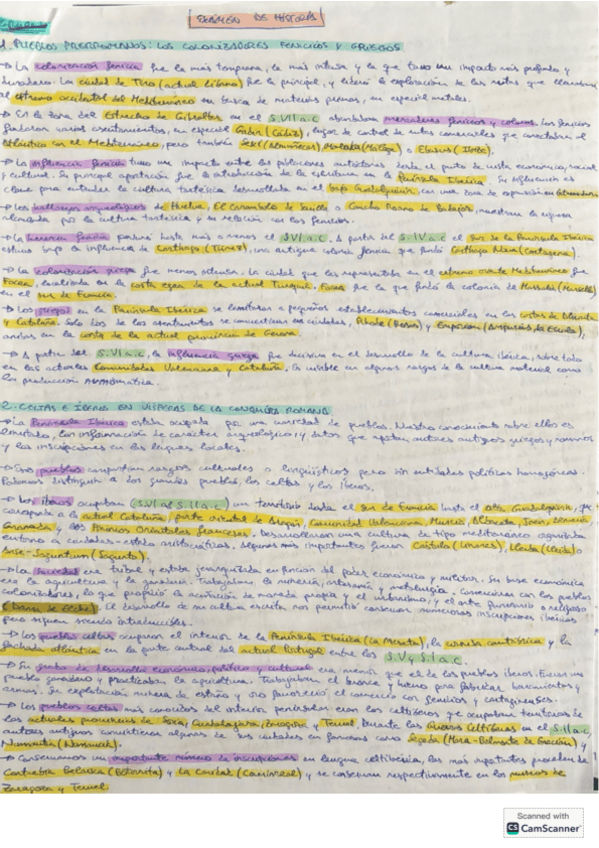 EXAMEN DE HISTORIA
1. PUEBLOS PRERROMANOS: LOS COLONIZADORES FENICIOS Y GRIEGOS
→ La colonización fenicia fue la más temprana, la más intensa y la que tuvo un impacto más profundo y
duradero. La ciudad de Tiro (actual Líbano) fue la principal, y lideró la exploración de las rutas que
el extremo occidental del Mediterráneo en busca de materias primas, en especial metales.
→ En la zona del Estrecho de Gibraltar en el S.VII a.c mercaderes fenicios y colonos. Los fenicios
fundaron varios asentamientos, en especial Gadir (Cádiz), lugar de control de rutas comerciales que conectaban el
Atlántico con el Mediterráneo, pero también Sexi (Almuñécar), Malaka (Málaga) o Ebusus (Ibiza).
→ La influencia fenicia tuvo un impacto entre las poblaciones autóctonas desde el punto de vista económico, social
y cultural. Su principal aportación fue la introducción de la escritura en la Península Ibérica. Su influencia es
clave para entender la cultura tartésica desarrollada en el bajo Guadalquivir, con una zona de expansión en
→ Los hallazgos arqueológicos de Huelva, El Carambolo de Sevilla o Cancho Roano de Badajoz, muestran la riqueza
alcanzada por la cultura tartésica y su relación con los fenicios.
→ La herencia fenicia perduró hasta más o menos el S.VI a.c. A partir del S.IV a.c el Sur de la Península Ibérica
estuvo bajo la influencia de Carthago (Túnez), una antigua colonia fenicia que fundó Carthago Nova (Cartagena).
→ La colonización griega fue menos intensa. La ciudad que los representaba en el extremo oriente Mediterráneo fue
Focea, localizada en la costa egea de la actual Turquía. Focea fue la que fundó la colonia de Massalia (Marsella)
en el sur de Francia.
→ Los griegos en la Península Ibérica se limitaron a pequeños establecimientos comerciales en las costas de
y Cataluña. Solo dos de los asentamientos se convirtieron en ciudades, Rhode (Rosas) y Emporion (Ampurias, la Escala),
ambas en la costa de la actual provincia de Gerona.
→ A partir del S.VI a.c, la influencia griega fue decisiva en el desarrollo de la cultura ibérica, sobre todo
en las actuales Comunidades Valenciana y Cataluña. Es visible en algunos rasgos de la cultura material como
la producción
2. CELTAS E ÍBEROS EN VÍSPERAS DE LA CONQUISTA ROMANA
→ La Península Ibérica estaba ocupada por una variedad de pueblos. Nuestro conocimiento sobre ellos es
limitado, la información de carácter arqueológico y datos que aportan autores antiguos griegos y romanos
y las inscripciones en las lenguas locales.
→ Los pueblos compartían rasgos culturales o lingüísticos pero sin entidades políticas homogéneas.
Podemos distinguir a dos grandes pueblos, los celtas y los íberos.
→ Los íberos ocupaban (S.VI al S.II a.c) un territorio desde el sur de Francia hasta el alto Guadalquivir, que
corresponde a la actual Cataluña, parte oriental de Aragón, Comunidad Valenciana, Murcia, Albacete, Jaén,
Granada y los Pirineos Orientales franceses. Desarrollaron una cultura de tipo mediterráneo
entorno a ciudades-estado aristocráticas. Algunas más importantes fueron Cástulo (Linares), (Lleida) o
Arse-Saguntum (Sagunto).
→ La sociedad era tribal y estaba jerarquizada en función del poder económico y militar. Su base económica
era la agricultura y la ganadería. Trabajaban la minería, artesanía y metalurgia. Comerciaron con los pueblos
colonizadores, lo que propició la acuñación de moneda propia y el urbanismo, y el arte funerario o religioso
(Dama de Elche). El desarrollo de su cultura escrita nos permitió conservar numerosas inscripciones ibéricas
pero siguen siendo intraducibles.
→ Los pueblos celtas ocuparon el interior de la Península Ibérica (La Meseta), la cornisa cantábrica y la
fachada atlántica en la parte central del actual Portugal entre los S.V y S.I a.c.
→ Su grado de desarrollo económico, político y cultural era menor que el de los pueblos íberos. Eran un
pueblo ganadero y practicaban la agricultura. Trabajaban el bronce y hierro para fabricar herramientas y
armas. Su explotación minera de estaño y oro favoreció el comercio con fenicios y cartagineses.
→ Los pueblos celtas más conocidos del interior peninsular eran los celtíberos que ocupaban territorios de
las actuales provincias de Soria, Guadalajara, Zaragoza y Teruel. Durante las Guerras Celtíberas en el S.II a.c,
autores antiguos convirtieron algunas de sus ciudades en famosas como Segeda (Mara-Belmonte de Gracián) y
Numantia (Numancia).
→ Conservamos un importante número de inscripciones en lengua celtibérica, las más importantes proceden de
Contrebia Belaisca (Botorrita) y La Caridad (Caminreal) y se conservan respectivamente en los museos de
Zaragoza y Teruel.
Scanned with
CS CamScanner